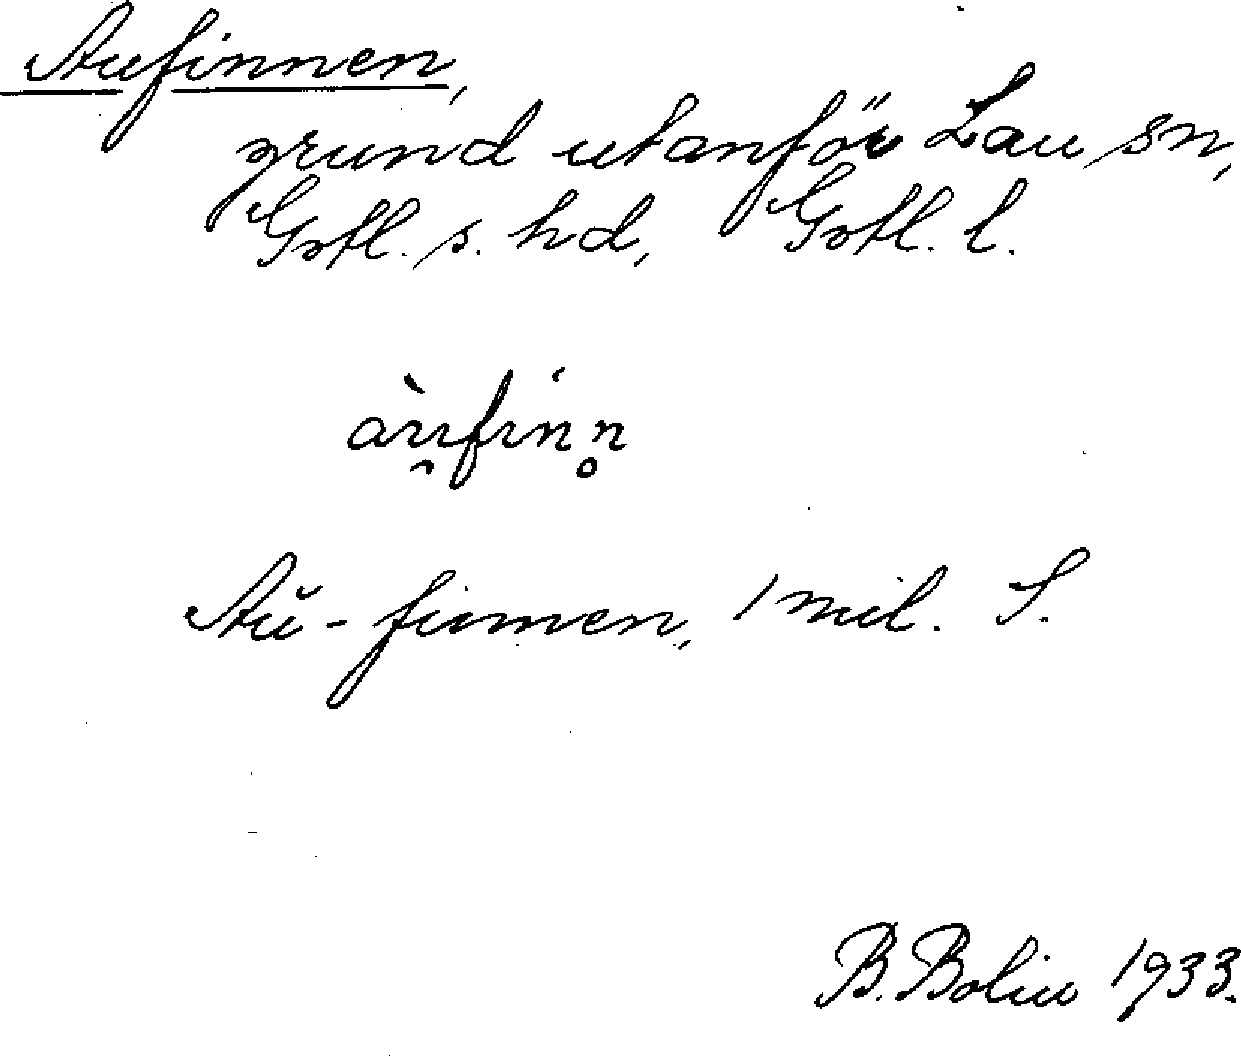 Aufinnen,
grund utanför Lau sn,
Gotl. s. hd, Gotl. l.
àu̯finn̥
Aŭ-finnen, 1 mil. S.
B. Bolin 1933.